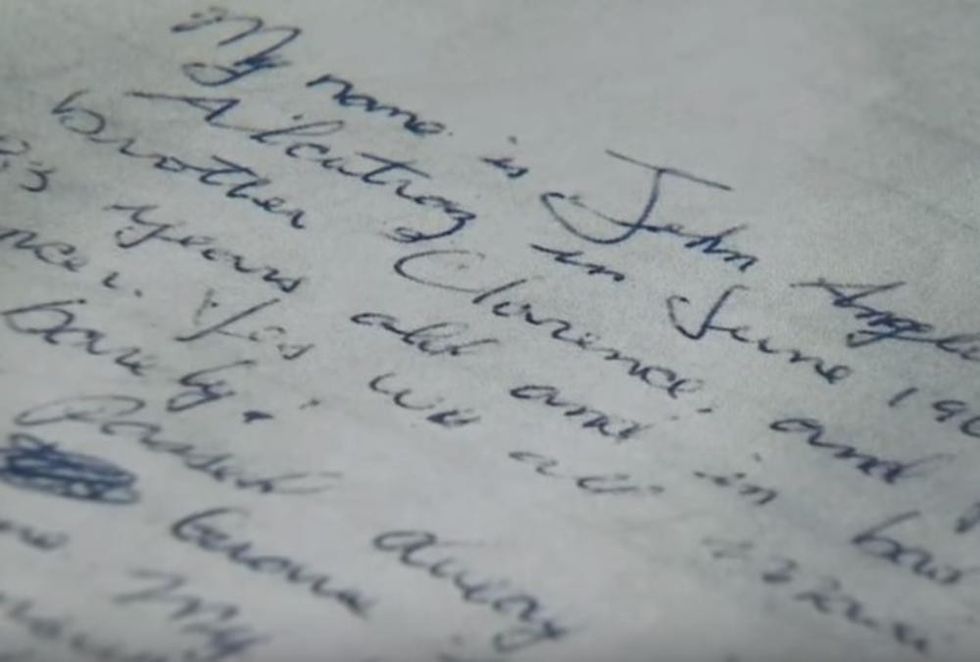 My name is John
Alcatraz in June 19
brother Clarence, and
83 years old and in bad
ncer. Yes we all
barely!
Passed away
My